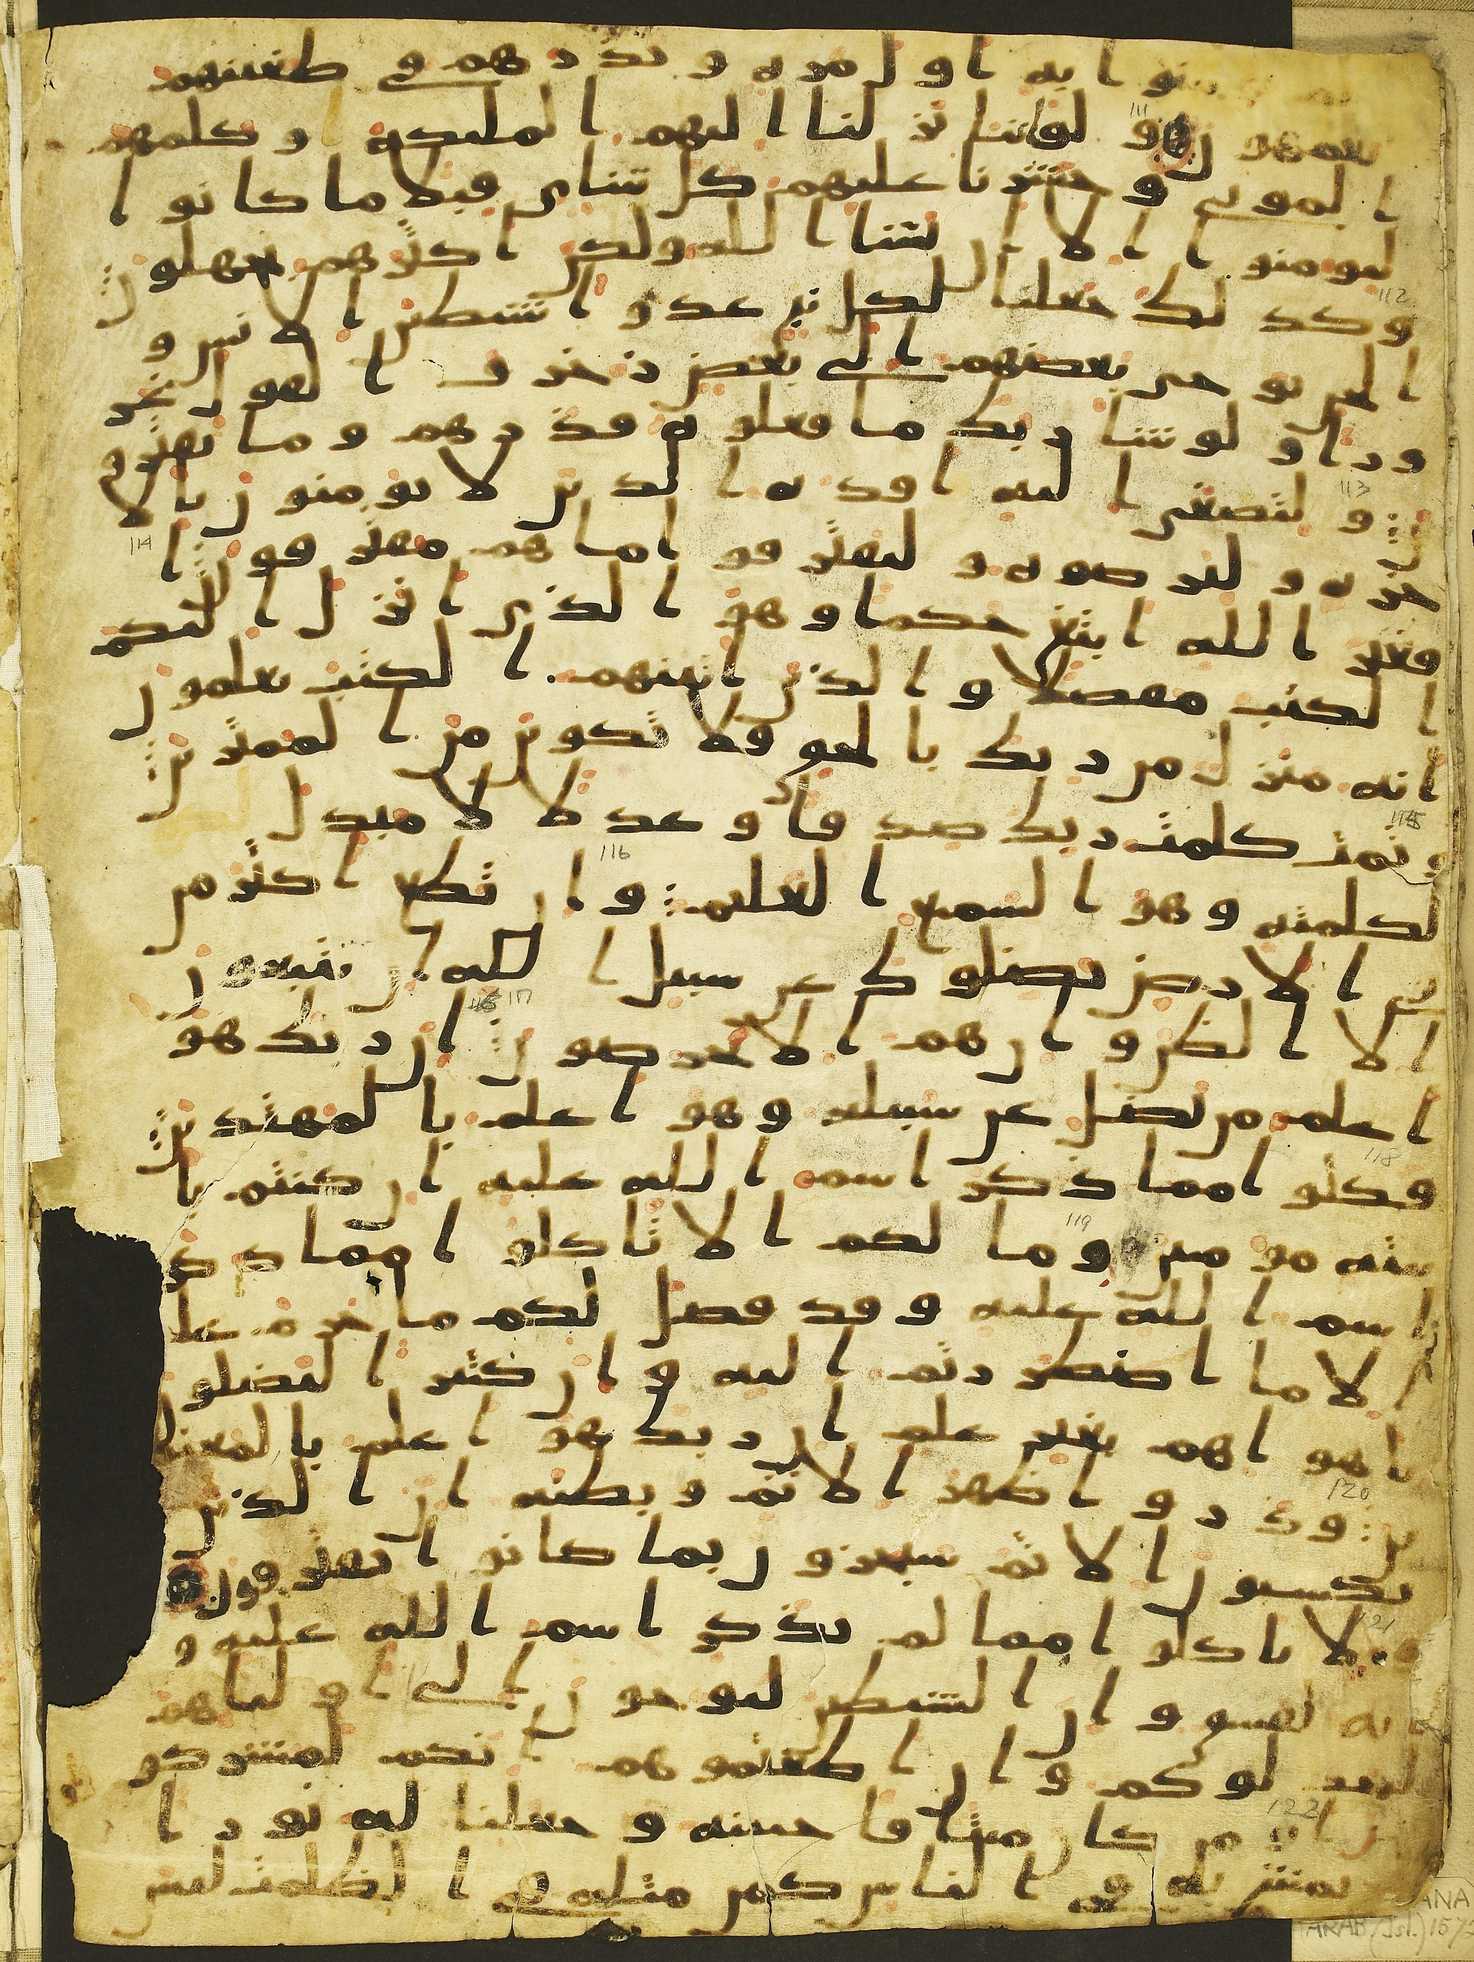 نوا به اول مره و نذرهم في طغينهم
يعمهون و لو اننا نزلنا اليهم الملئكه و كلمهم
111
الموتي و حشرنا عليهم كل شاي قبلا ما كانوا
ليومنوا الا ان يشا الله ولكن اكثرهم يجهلون
112
وكذلك جعلنا لكل نبي عدوا شيطين الانس و
الجن يوحي بعضهم الي بعض زخرف القول غر
ورا و لو شا ربك ما فعلوه فذرهم و ما يفتر
113
ون و لتصغي اليه افده الذين لا يومنون بالا
خره و ليرضوه و ليقترفوا ما هم مقترفون ا
114
فغير الله ابتغي حكما وهو الذي انزل اليكم
الكتب مفصلا والذين اتينهم الكتب يعلمون
انه منزل من ربك بالحق فلا تكونن من الممترين
115
وتمت كلمت ربك صدقا و عدلا لا مبدل
لكلمته وهو السميع العليم و ان تطع اكثر من
116
في الارض يضلوك عن سبيل الله ان يتبعون
الا الظن و ان هم الا يخرصون ان ربك هو
117
اعلم من يضل عن سبيله وهو اعلم بالمهتدين
118
فكلوا مما ذكر اسم الله عليه ان كنتم با
يته مومنين وما لكم الا تاكلوا مما ذكر
119
اسم الله عليه وقد فصل لكم ما حرم علـ
الا ما اضطررتم اليه و ان كثيرا ليضلون
باهواهم بغير علم ان ربك هو اعلم بالمعتد
120
ين و ذروا ظهر الاثم و بطنه ان الذين
يكسبون الاثم سيجزون بما كانوا يقترفون
121
و لا تاكلوا مما لم يذكر اسم الله عليه و
انه لفسق و ان الشيطين ليوحون الي اوليائهم
ليجدلوكم و ان اطعتموهم انكم لمشركو
122
ن او من كان ميتا فاحيينه و جعلنا له نورا
يمشي به في الناس كمن مثله في الظلمت ليس